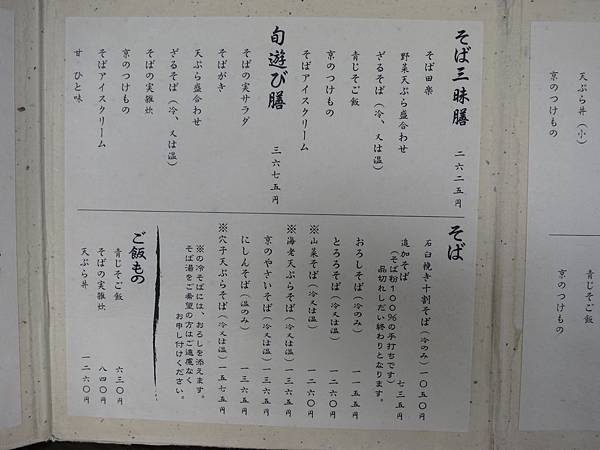 天ぷら丼(小)
京のつけもの
青じそご飯
京のつけもの
そば三昧膳 二六二五円
そば田楽
野菜天ぷら盛合わせ
ざるそば(冷、又は温)
青じそご飯
京のつけもの
そばアイスクリーム
旬遊び膳 三六七五円
そばの実サラダ
そばがき
天ぷら盛合わせ
ざるそば(冷、又は温)
そばの実雑炊
京のつけもの
そばアイスクリーム
甘 ひと味
そば
石臼挽き十割そば(冷のみ) 一〇五〇円
追加そば 七三五円
(そば粉100%の手打ちです)
品切れしだい終わりとなります。
おろしそば(冷のみ) 一一五五円
とろろそば(冷又は温) 一二六〇円
※山菜そば(冷又は温) 一二六〇円
※海老天ぷらそば(冷又は温) 一三六五円
京のやさいそば(冷又は温) 一三六五円
にしんそば(温のみ) 一三六五円
※穴子天ぷらそば(冷又は温) 一五七五円
※の冷そばには、おろしを添えます。
そば湯をご希望の方はご遠慮なく
お申し付けください。
ご飯もの
青じそご飯 六三〇円
そばの実雑炊 八四〇円
天ぷら丼 一二六〇円